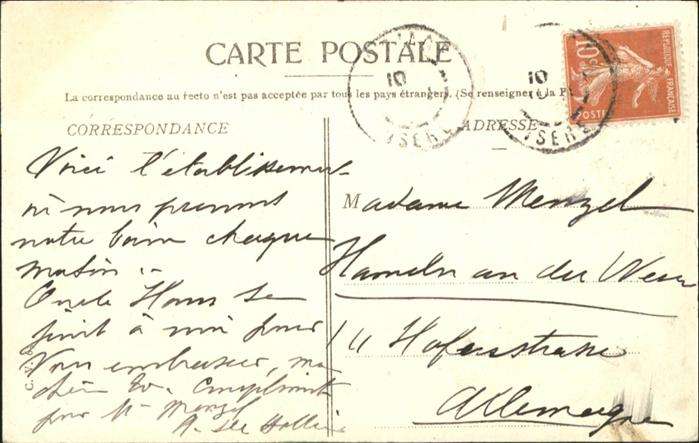 CARTE POSTALE
La correspondance au recto n'est pas acceptée par tous les pays étrangers. (Se renseigner à la P
CORRESPONDANCE
ADRESSE
Voici l'établissement
où nous prenons
notre bain chaque
matin ..
Oncle Hans se
joint à moi pour
vous embrasser, ma
chère
Compliments
pour Mr Menzel
Madame Menzel
Hameln an der Weser
Hafenstrasse
Allemagne
ISÈRE
ISÈRE
10
10
10c
REPUBLIQUE FRANÇAISE
POSTES